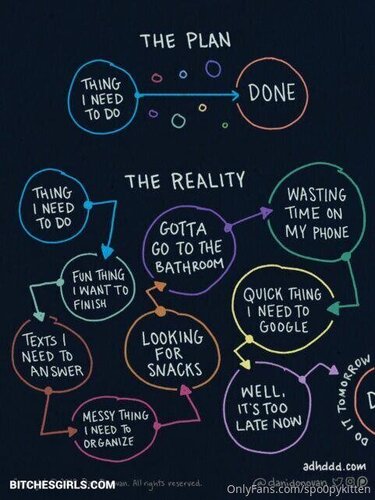 THE PLAN
THING
I NEED
TO DO
DONE
THE REALITY
THING
I NEED
TO DO
FUN THING
I WANT TO
FINISH
TEXTS I
NEED TO
ANSWER
MESSY THING
I NEED TO
ORGANIZE
LOOKING
FOR
SNACKS
GOTTA
GO TO THE
BATHROOM
WASTING
TIME ON
MY PHONE
QUICK THING
I NEED TO
GOOGLE
WELL,
IT'S TOO
LATE NOW
DO IT TOMORROW
D
adhddd.com
BITCHESGIRLS.COM
All rights reserved.
@danidonovan
OnlyFans.com/spo0pykitten